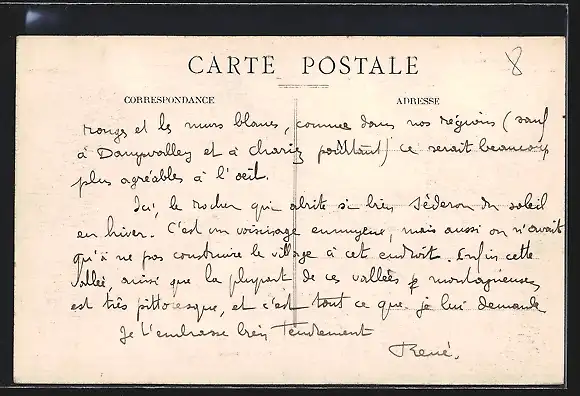 CARTE POSTALE
8
CORRESPONDANCE
ADRESSE
rouges et les murs blancs, comme dans nos régions (sauf
à Dampvalley et à Chariez pourtant) ce serait beaucoup
plus agréables à l'oeil.
Ici, le rocher qui abrite si bien Séderon du soleil
en hiver. C'est un voisinage ennuyeux, mais aussi on n'avait
qu'à ne pas construire le village à cet endroit. Enfin cette
vallée, ainsi que la plupart de ces vallées montagneuses,
est très pittoresque, et c'est tout ce que je lui demande
Je t'embrasse bien tendrement
René.